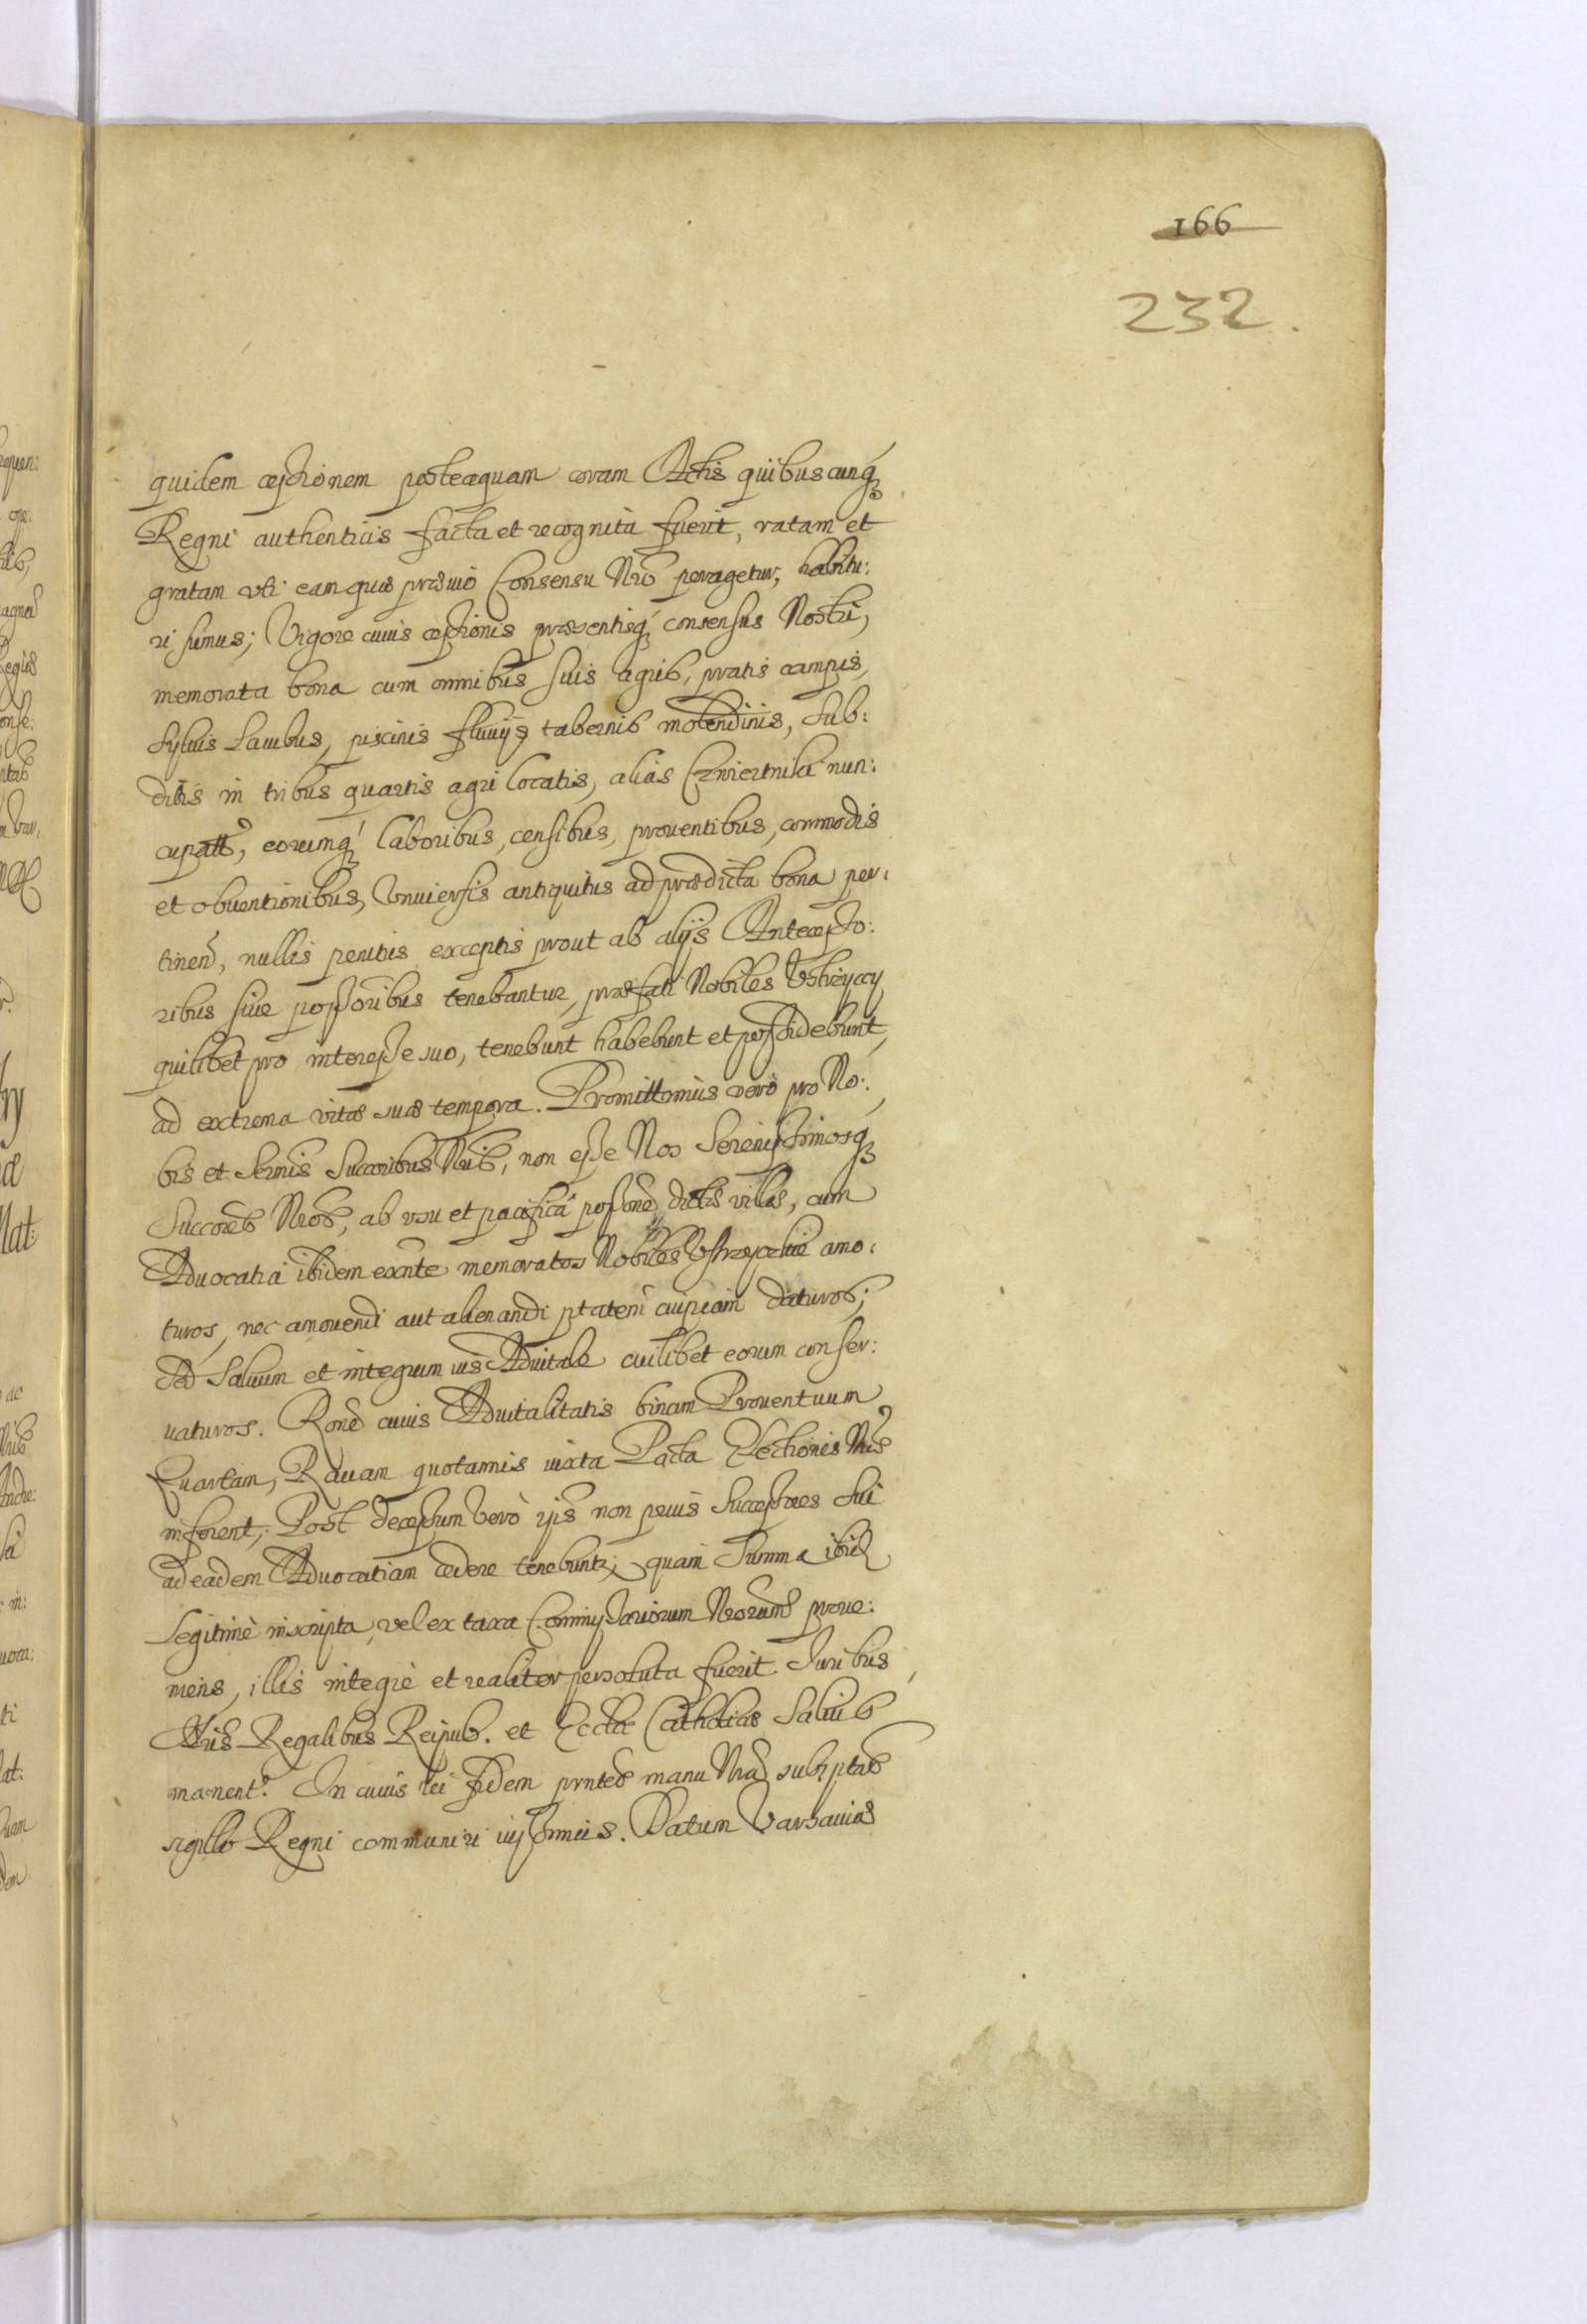 166
232.
quidem cessionem posteaquam coram Actis quibuscunq́
Regni authenticis facta et recognita fuerit, ratam et
gratam vti eam quæ præuio Consensu Nrõ peragetur, habitu:
ri sumus; Vigore cuius cessionis præsentisq́ consensus Nostri,
memorata bona cum omnibus suis agris, pratis campis,
syluis Lacubus, piscinis fluuijs tabernis molendinis, Sub:
ditis in tribus quartis agri locatis, alias Czwiertnik nun:
cupatt, eorumq́ laboribus, censibus, prouentibus, commodis
et obuentionibus, Vniuersis antiquitus ad prædicta bona per:
tinen, nullis penitus exceptis prout ab alijs Antecesso:
ribus siue possoribus tenebantur, præfati Nobiles Vstrzyccy
quilibet pro interesse suo, tenebunt habebunt et possidebunt,
ad extrema vitæ suæ tempora. Promittimus vero pro No:
bis et Sermis Succoribus Nris, non esse Nos Serenissimosq́
Succores Nros, ab vsu et pacifica possone dictis villis, cum
Aduocatia ibidem exnte memoratos Nobiles Vstrzyckie amo:
turos, nec amouendi aut alienandi ptatem cuipiam daturos;
Sed Saluum et integrum ius Aduitale cuilibet eorum conser:
uaturos. Rone cuius Aduitalitatis binam Prouentuum
Quartam, Rauam quotannis iuxta Pacta Electionis Nræ
inferent, Post decessum verò ijs non prius Successores Sui
ad eadem Aduocatiam cedere tenebuntr, quam Summa ibid
Legitimè inscripta, vel ex taxa Commissariorum Nrorum proue:
niens, illis integrè et realiter persoluta fuerit. Iuribus
Nris Regalibus Reipub. et Ecclæ Catholicæ Saluis
manent. In cuius rei fidem pnntes manu Nra subsptas
sigillo Regni communiri iussimus. Datum Varsauiæ